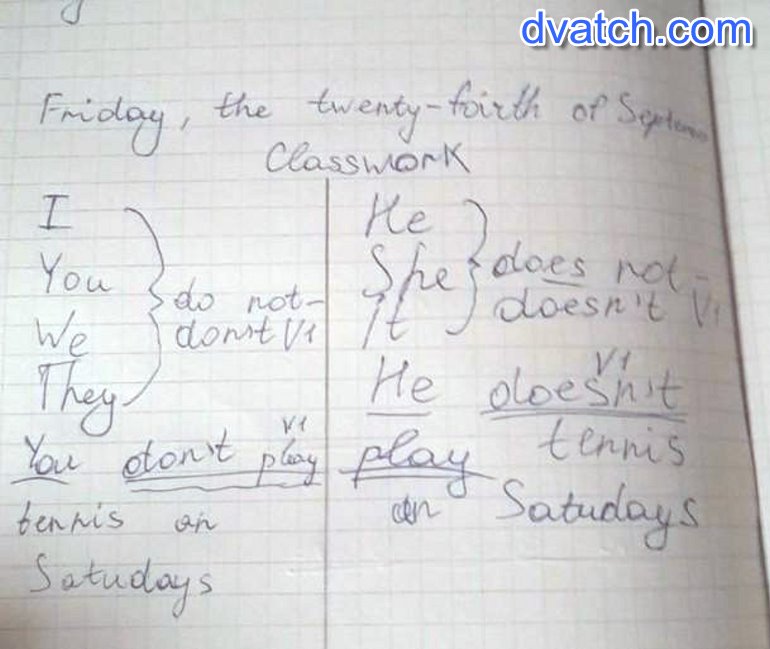 dvatch.com
Friday, the twenty-foirth of Septem
Classwork
I
You
We
They
do not-
don't V1
You don't play
V1
tennis on
Satudays
He
She
It
does not-
doesn't V1
V1
He doesn't
play tennis
on Satudays